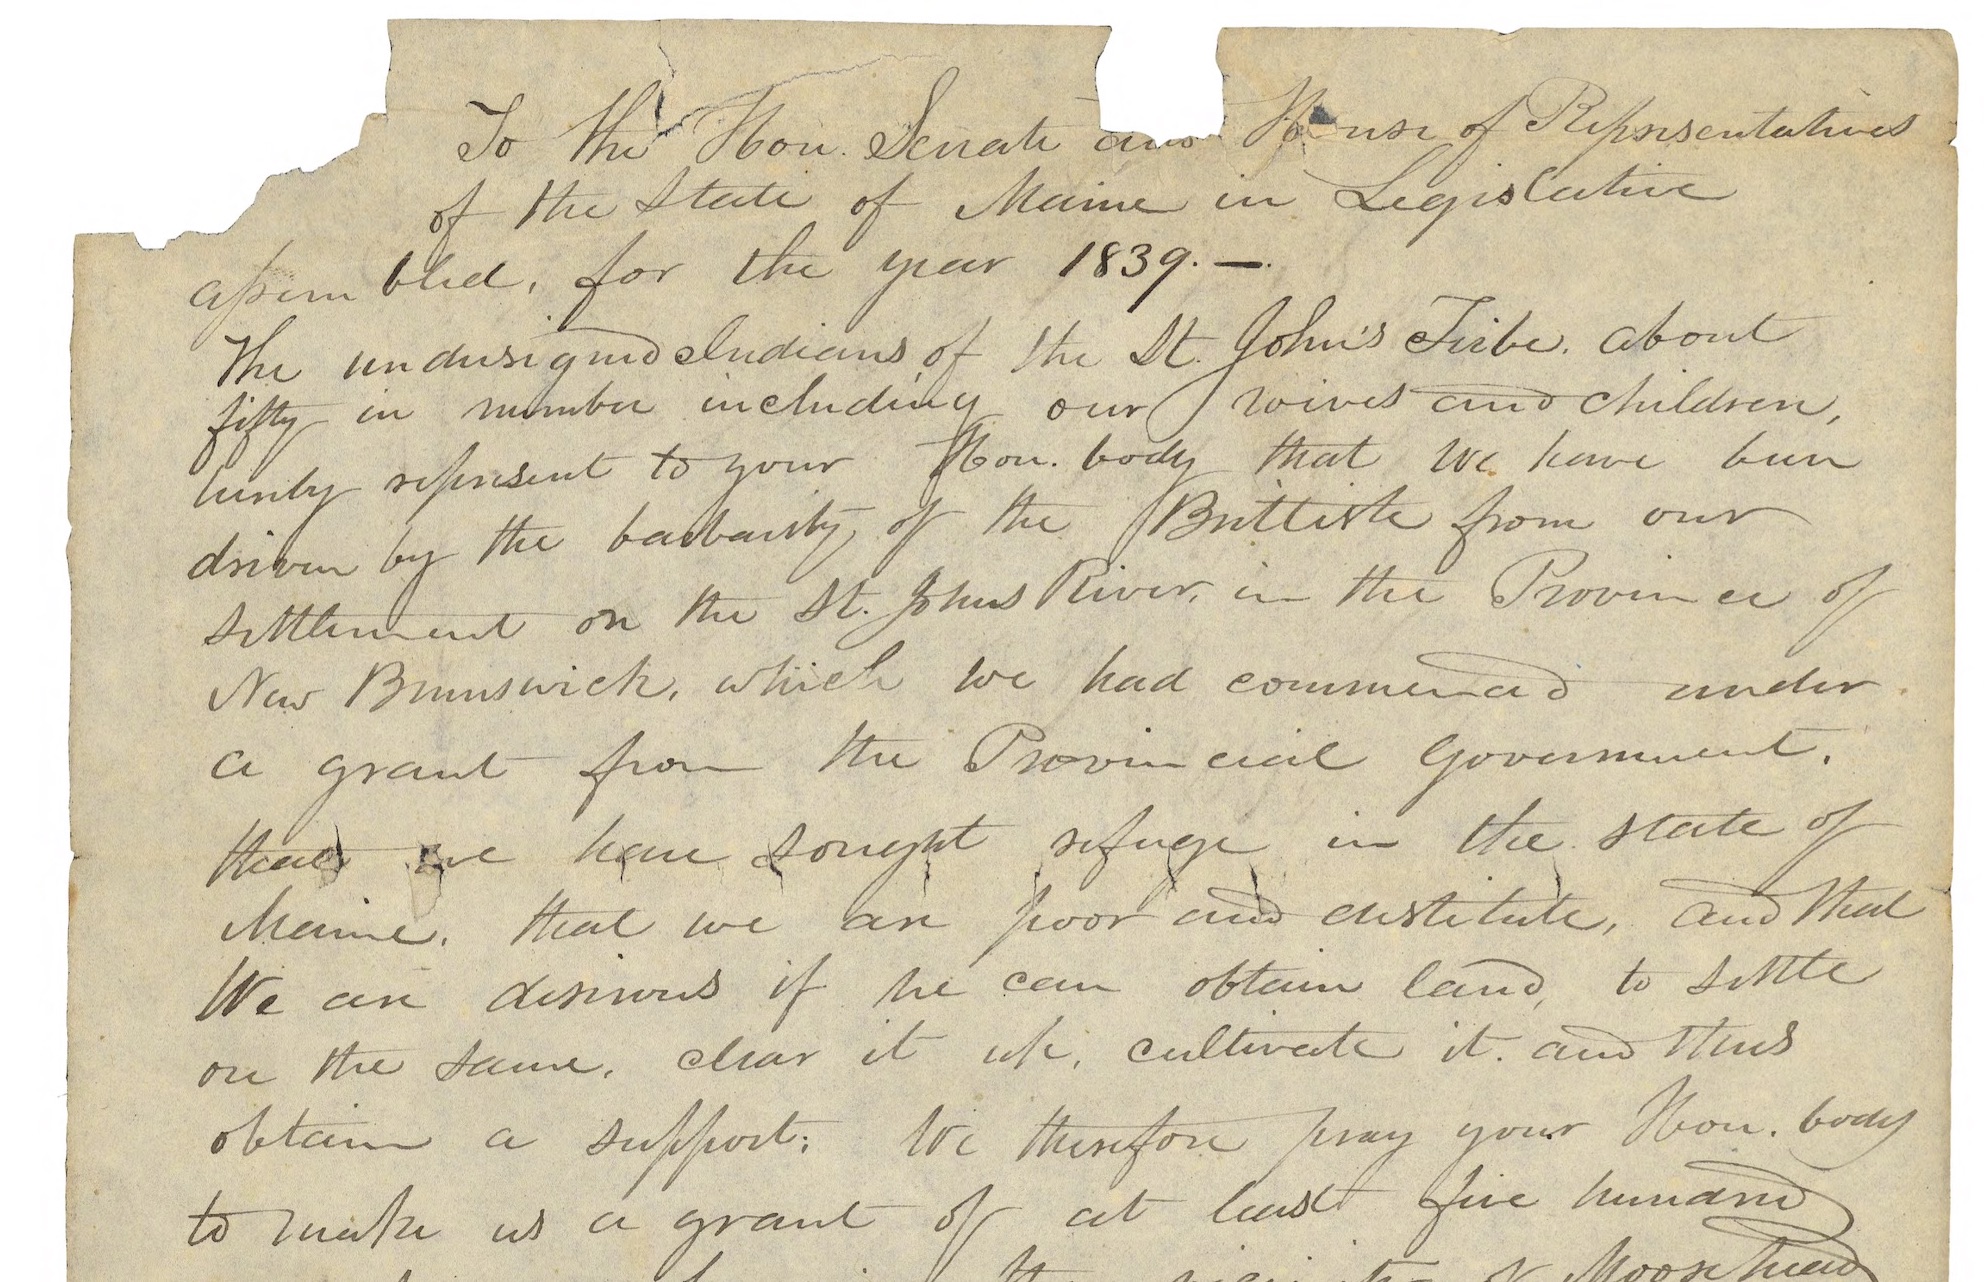 To the Hon. Senate and House of Representatives
of the State of Maine in Legislative
assembled, for the year 1839. —
The undersigned Indians of the St. John's Tribe. about
fifty in number including our wives and children,
hereby represent to your Hon. body that we have been
driven by the barbarity of the Brittish from our
settlement on the St. Johns River, in the Province of
New Brunswick, which we had commenced under
a grant from the Provincial Government.
that we have sought refuge in the state of
Maine. that we are poor and destitute, and that
We are desirous if we can obtain land, to settle
on the same, clear it up, cultivate it. and thus
obtain a support; We therefore pray your Hon. body
to make us a grant of at least five hundred
the vicinity of Moosehead